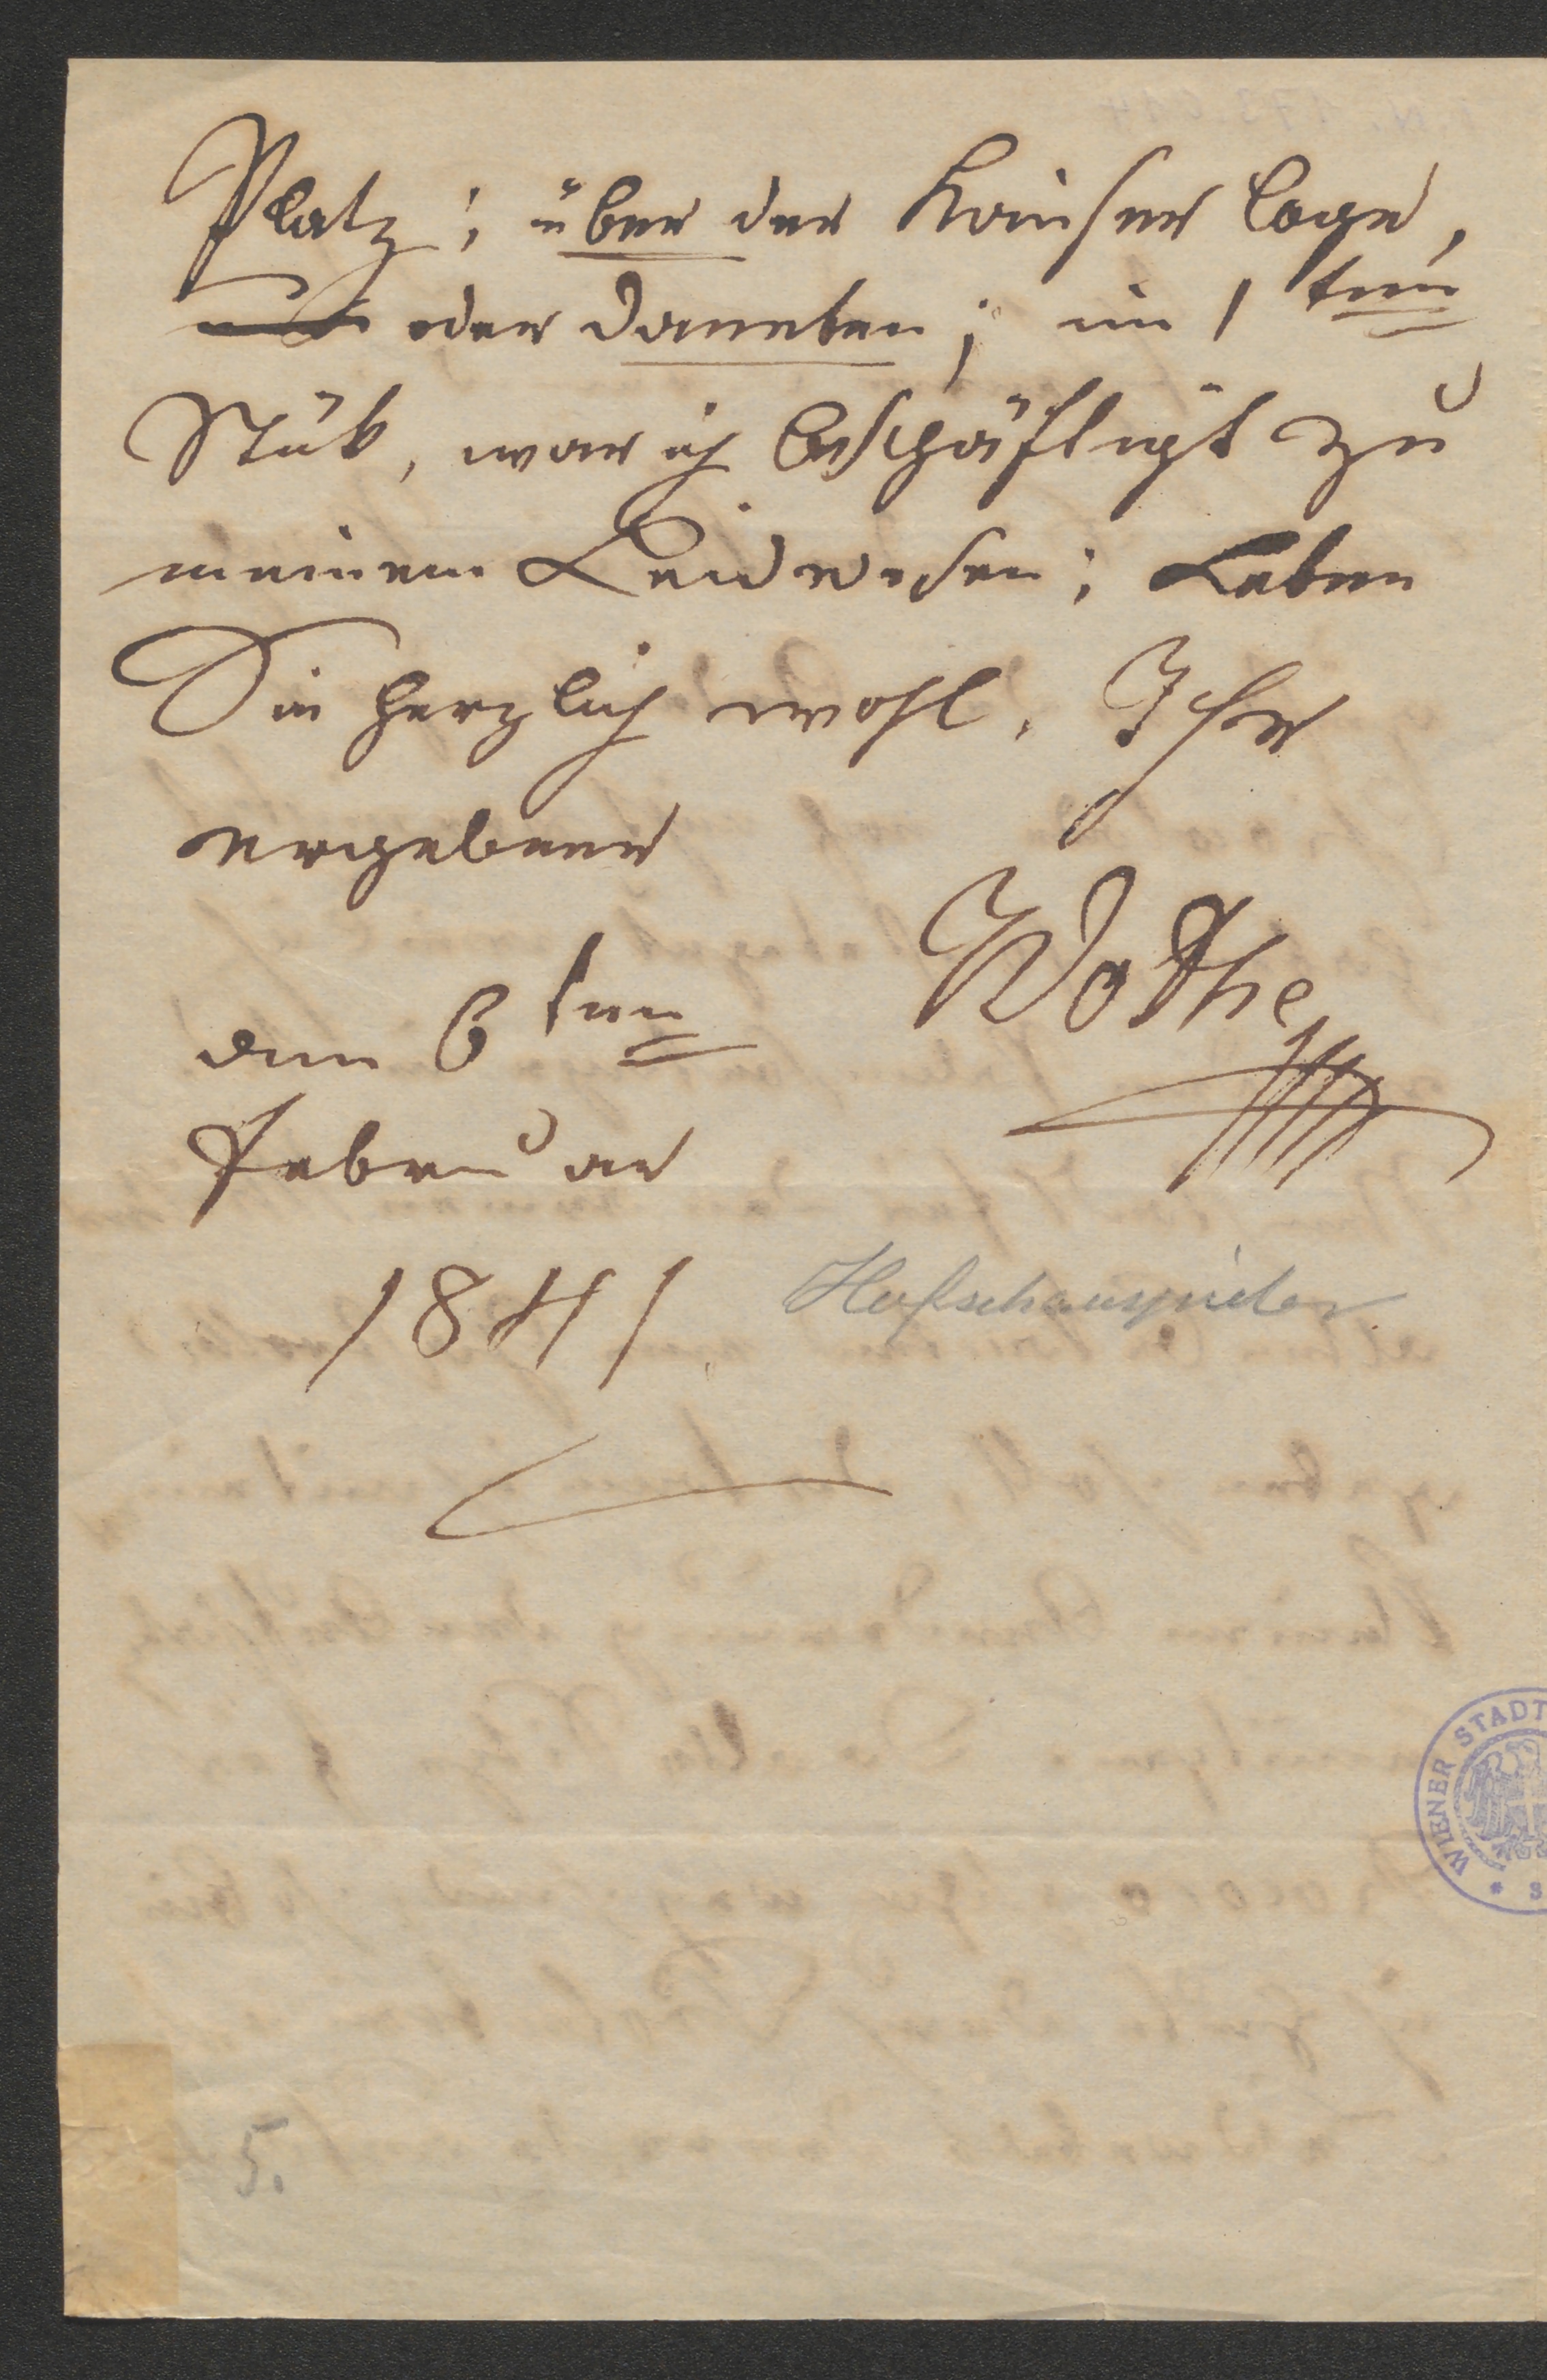 Platz; über der Kaiser loge,
oder daneben; im 1 ten
Stük, war ich beschäftigt zu
meinem Leidwesen; Leben
Sie herzlich wohl. Ihr
ergebener
Wothe
den 6 ten
Februar
1841.
Hofschauspieler.
WIENER STADT
5.